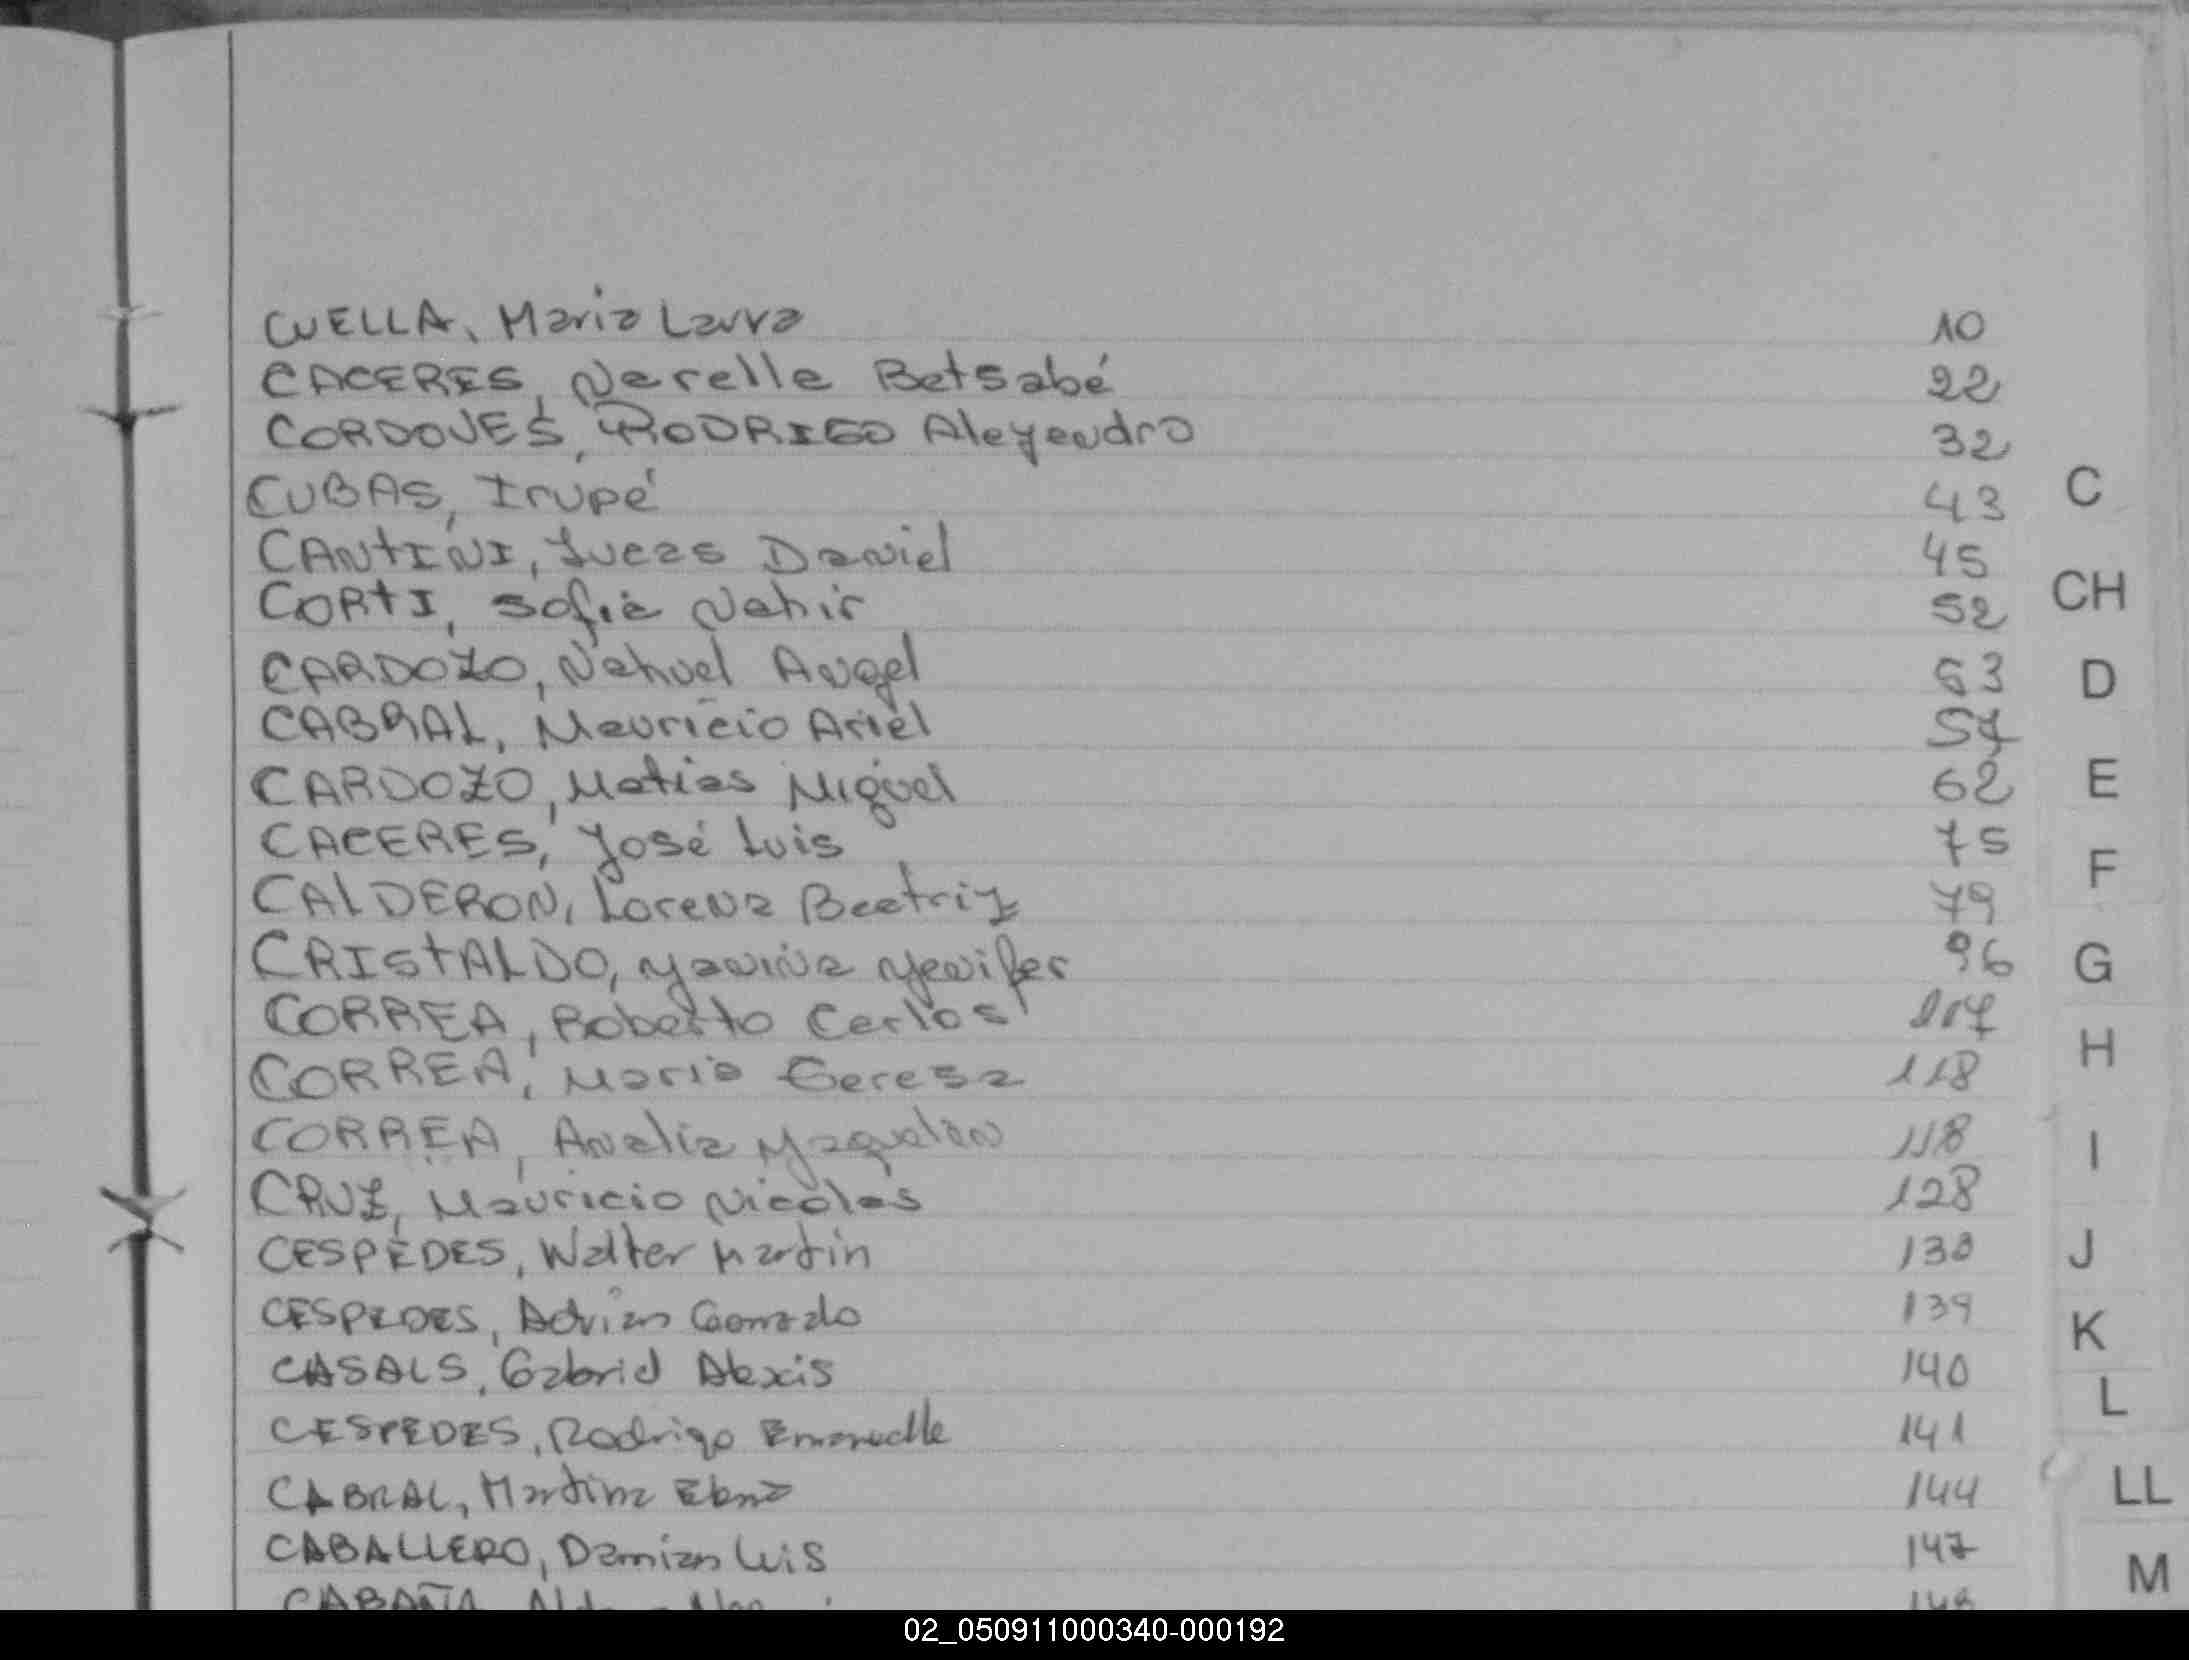 CUELLA, Maria Laura 10
CACERES, Nerelle Betsabé 22
CORDOVES, RODRIGO Aleyendro 32
CUBAS, Irupé 43
CANTINI, Lucas Daniel 45
CORTI, Sofia Nahir 52
CARDOZO, Nahuel Angel 63
CABRAL, Mauricio Ariel 57
CARDOZO, Matias Miguel 62
CACERES, José Luis 75
CALDERON, Lorena Beatriz 79
CRISTALDO, Yanina Yenifer 96
CORREA, Roberto Carlos 117
CORREA, Maria Teresa 118
CORREA, Analia Yaquelin 118
CRUZ, Mauricio Nicolas 128
CESPEDES, Walter Martin 138
CESPEDES, Adrian Gonzalo 139
CASALS, Gabriel Alexis 140
CESPEDES, Rodrigo Emanuelle 141
CABRAL, Martina 144
CABALLERO, Damian Luis 147
CABAÑA
C
CH
D
E
F
G
H
I
J
K
L
LL
M
02_050911000340-000192